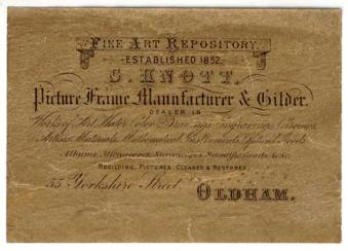 FINE ART REPOSITORY
ESTABLISHED 1852.
S. KNOTT.
Picture Frame Manufacturer & Gilder.
DEALER IN
Works of Art, Water Color Drawings, Engravings,
Artists Materials, Mathematical Instruments,
Albums,
REGILDING, PICTURES CLEANED & RESTORED.
55 Yorkshire Street
OLDHAM.